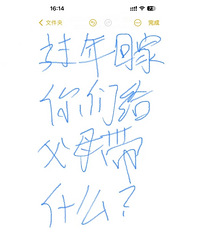 16:14
文件夹
完成
过年回家
你们给
父母带
什么?